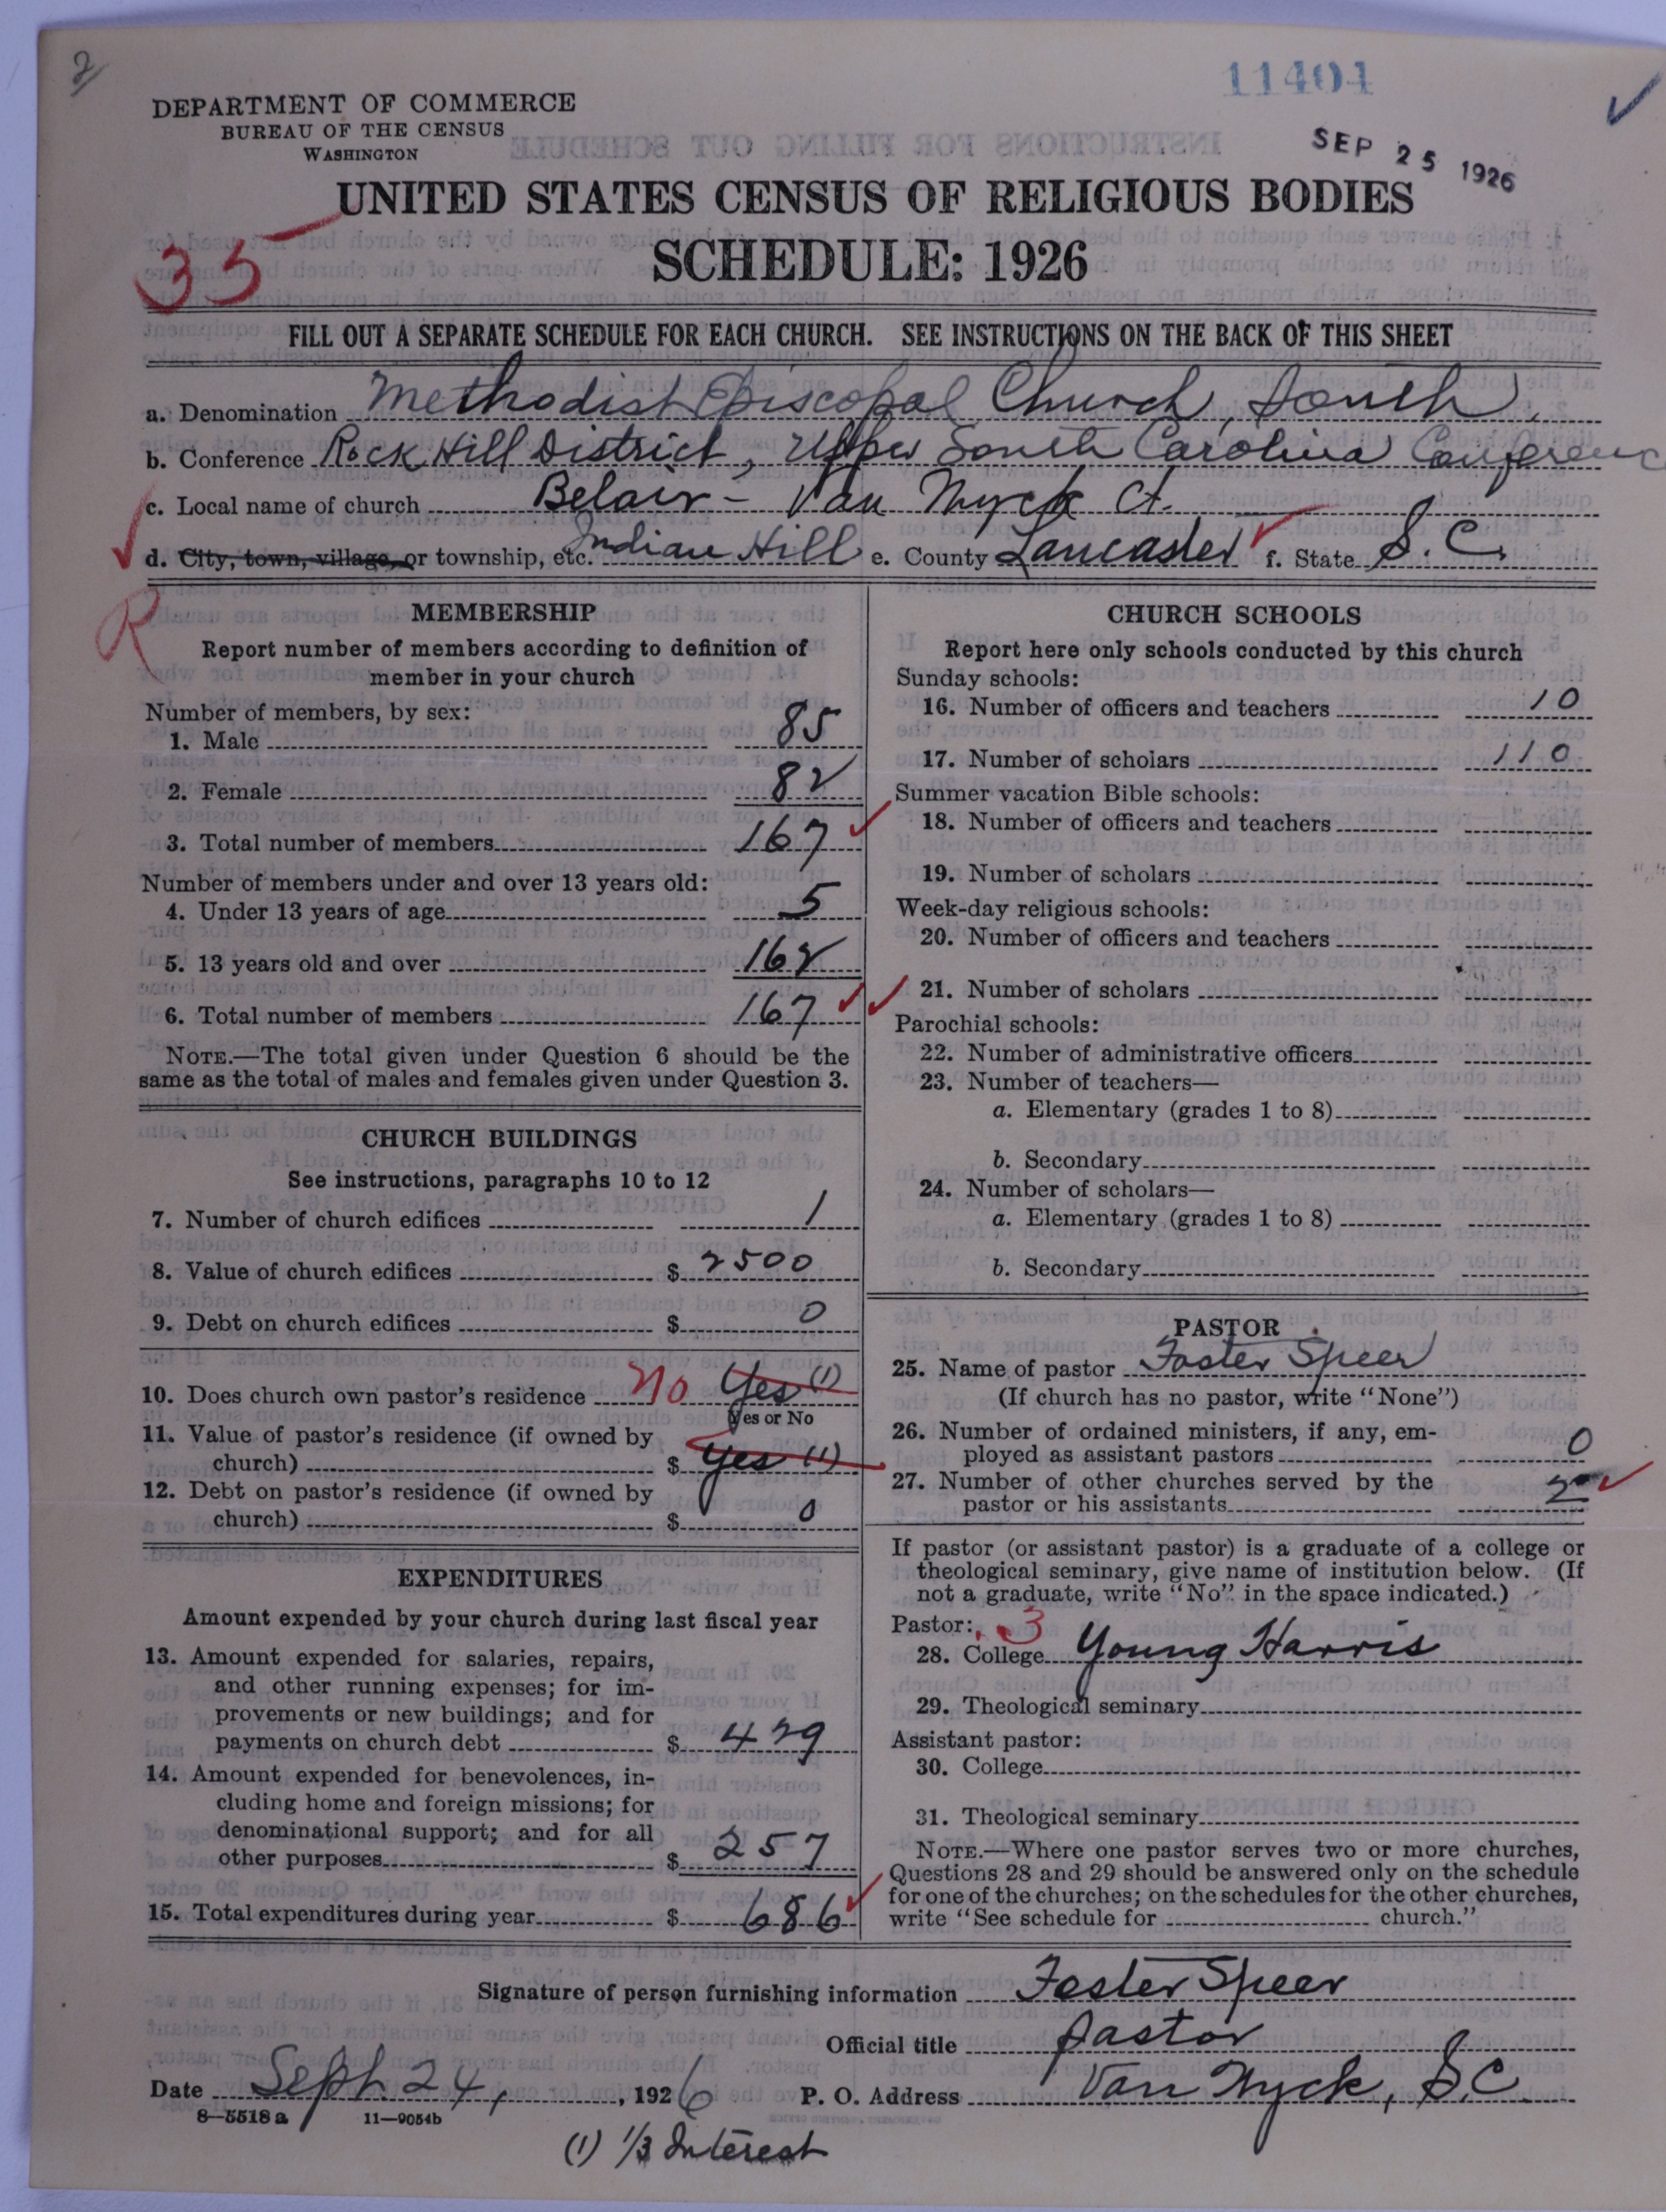 2
11404
DEPARTMENT OF COMMERCE
BUREAU OF THE CENSUS
WASHINGTON
SEP 25 1926
UNITED STATES CENSUS OF RELIGIOUS BODIES
35
SCHEDULE: 1926
FILL OUT A SEPARATE SCHEDULE FOR EACH CHURCH. SEE INSTRUCTIONS ON THE BACK OF THIS SHEET
a. Denomination Methodist Episcopal Church, South,
b. Conference Rock Hill District, Upper South Carolina Conferenc
c. Local name of church Belair - Van Wyck Ct.
d. City, town, village, or township, etc. Indian Hill e. County Lancaster f. State S. C.
R
MEMBERSHIP
Report number of members according to definition of
member in your church
Number of members, by sex:
1. Male 85
2. Female 82
3. Total number of members 167
Number of members under and over 13 years old:
4. Under 13 years of age 5
5. 13 years old and over 162
6. Total number of members 167
NOTE.—The total given under Question 6 should be the
same as the total of males and females given under Question 3.
CHURCH BUILDINGS
See instructions, paragraphs 10 to 12
7. Number of church edifices 1
8. Value of church edifices $ 2500
9. Debt on church edifices $ 0
10. Does church own pastor's residence No Yes (1)
Yes or No
11. Value of pastor's residence (if owned by
church) $ Yes (1)
12. Debt on pastor's residence (if owned by
church) $ 0
EXPENDITURES
Amount expended by your church during last fiscal year
13. Amount expended for salaries, repairs,
and other running expenses; for im-
provements or new buildings; and for
payments on church debt $ 429
14. Amount expended for benevolences, in-
cluding home and foreign missions; for
denominational support; and for all
other purposes $ 257
15. Total expenditures during year $ 686
CHURCH SCHOOLS
Report here only schools conducted by this church
Sunday schools:
16. Number of officers and teachers 10
17. Number of scholars 110
Summer vacation Bible schools:
18. Number of officers and teachers
19. Number of scholars
Week-day religious schools:
20. Number of officers and teachers
21. Number of scholars
Parochial schools:
22. Number of administrative officers
23. Number of teachers—
a. Elementary (grades 1 to 8)
b. Secondary
24. Number of scholars—
a. Elementary (grades 1 to 8)
b. Secondary
PASTOR
25. Name of pastor Foster Speer
(If church has no pastor, write "None")
26. Number of ordained ministers, if any, em-
ployed as assistant pastors 0
27. Number of other churches served by the
pastor or his assistants 2
If pastor (or assistant pastor) is a graduate of a college or
theological seminary, give name of institution below. (If
not a graduate, write "No" in the space indicated.)
Pastor: 3
28. College Young Harris
29. Theological seminary
Assistant pastor:
30. College
31. Theological seminary
NOTE.—Where one pastor serves two or more churches,
Questions 28 and 29 should be answered only on the schedule
for one of the churches; on the schedules for the other churches,
write "See schedule for church."
Signature of person furnishing information Foster Speer
Official title Pastor
Date Sept. 24, 1926 P. O. Address Van Wyck, S.C.
8—5518 a 11—9054b
(1) 1/3 Interest